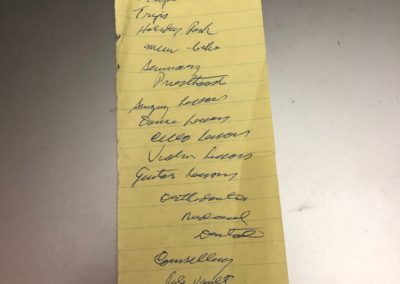 Trips
Holiday Park
Seminary
Priesthood
Singing Lessons
Dance Lessons
Cello Lessons
Violin Lessons
Guitar Lessons
Orthodontia
Medical
Dental
Counselling